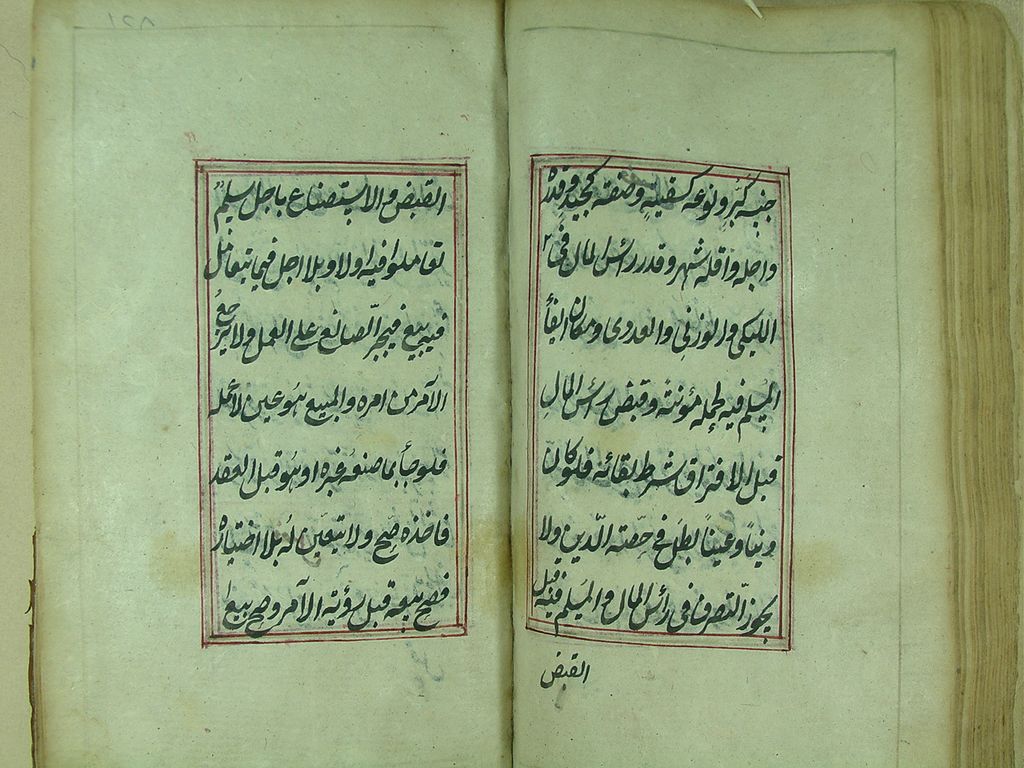 جنسه كبر ونوعه كسقيته وصفته كجيد وقدره
واجله واقله شهر وقدر رأس المال في
الكيلي والوزني والعددي ومكان ايفا
المسلم فيه لحمله مئونته وقبض رأس المال
قبل الافتراق شرط بقائه فلو كان
دينا وعينا بطل في حصته الدين ولا
يجوز التصرف في رأس المال والمسلم فيه قبل
القبض
القبض والاستصناع باجل سلم
تعاملوا فيه اولا وبلا اجل فيما يتعامل
فيه بيع فيجبر الصانع على العمل ولا يرجع
الآمر من امره والمبيع هو عين لا عمله
فلو جأ بما صنعه غيره او هو قبل العقد
فاخذه صح ولا يتعين له بلا اختياره
فصح بيعه قبل رؤية الآمر وصح بيع